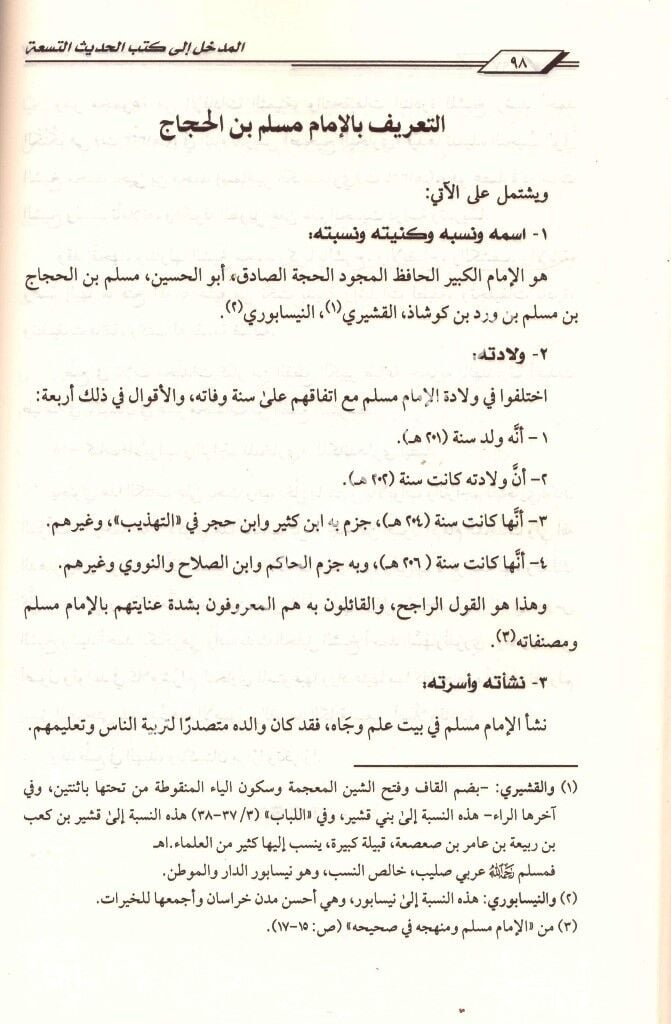 المدخل إلى كتب الحديث التسعة
٩٨
التعريف بالإمام مسلم بن الحجاج
ويشتمل على الآتي:
١- اسمه ونسبه وكنيته ونسبته:
هو الإمام الكبير الحافظ المجود الحجة الصادق، أبو الحسين، مسلم بن الحجاج
بن مسلم بن ورد بن كوشاذ، القشيري(١)، النيسابوري(٢).
٢- ولادته:
اختلفوا في ولادة الإمام مسلم مع اتفاقهم على سنة وفاته، والأقوال في ذلك أربعة:
١- أنَّه ولد سنة (٢٠١ هـ).
٢- أنَّ ولادته كانت سنة (٢٠٢ هـ).
٣- أنَّها كانت سنة (٢٠٤ هـ)، جزم به ابن كثير وابن حجر في «التهذيب»، وغيرهم.
٤- أنَّها كانت سنة (٢٠٦ هـ)، وبه جزم الحاكم وابن الصلاح والنووي وغيرهم.
وهذا هو القول الراجح، والقائلون به هم المعروفون بشدة عنايتهم بالإمام مسلم
ومصنفاته(٣).
٣- نشأته وأسرته:
نشأ الإمام مسلم في بيت علم وجَاه، فقد كان والده متصدرًا لتربية الناس وتعليمهم.
(١) والقشيري: -بضم القاف وفتح الشين المعجمة وسكون الياء المنقوطة من تحتها باثنتين، وفي
آخرها الراء- هذه النسبة إلى بني قشير، وفي «اللباب» (٣/ ٣٧-٣٨) هذه النسبة إلى قشير بن كعب
بن ربيعة بن عامر بن صعصعة، قبيلة كبيرة، ينسب إليها كثير من العلماء.اهـ
فمسلم رحمه الله عربي صليب، خالص النسب، وهو نيسابور الدار والموطن.
(٢) والنيسابوري: هذه النسبة إلى نيسابور، وهي أحسن مدن خراسان وأجمعها للخيرات.
(٣) من «الإمام مسلم ومنهجه في صحيحه» (ص: ١٥-١٧).